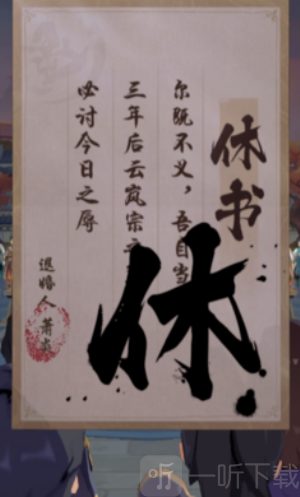 休书
尔既不义，吾自当
三年后云岚宗之
必讨今日之辱
退婚人 萧炎
休
一听下载